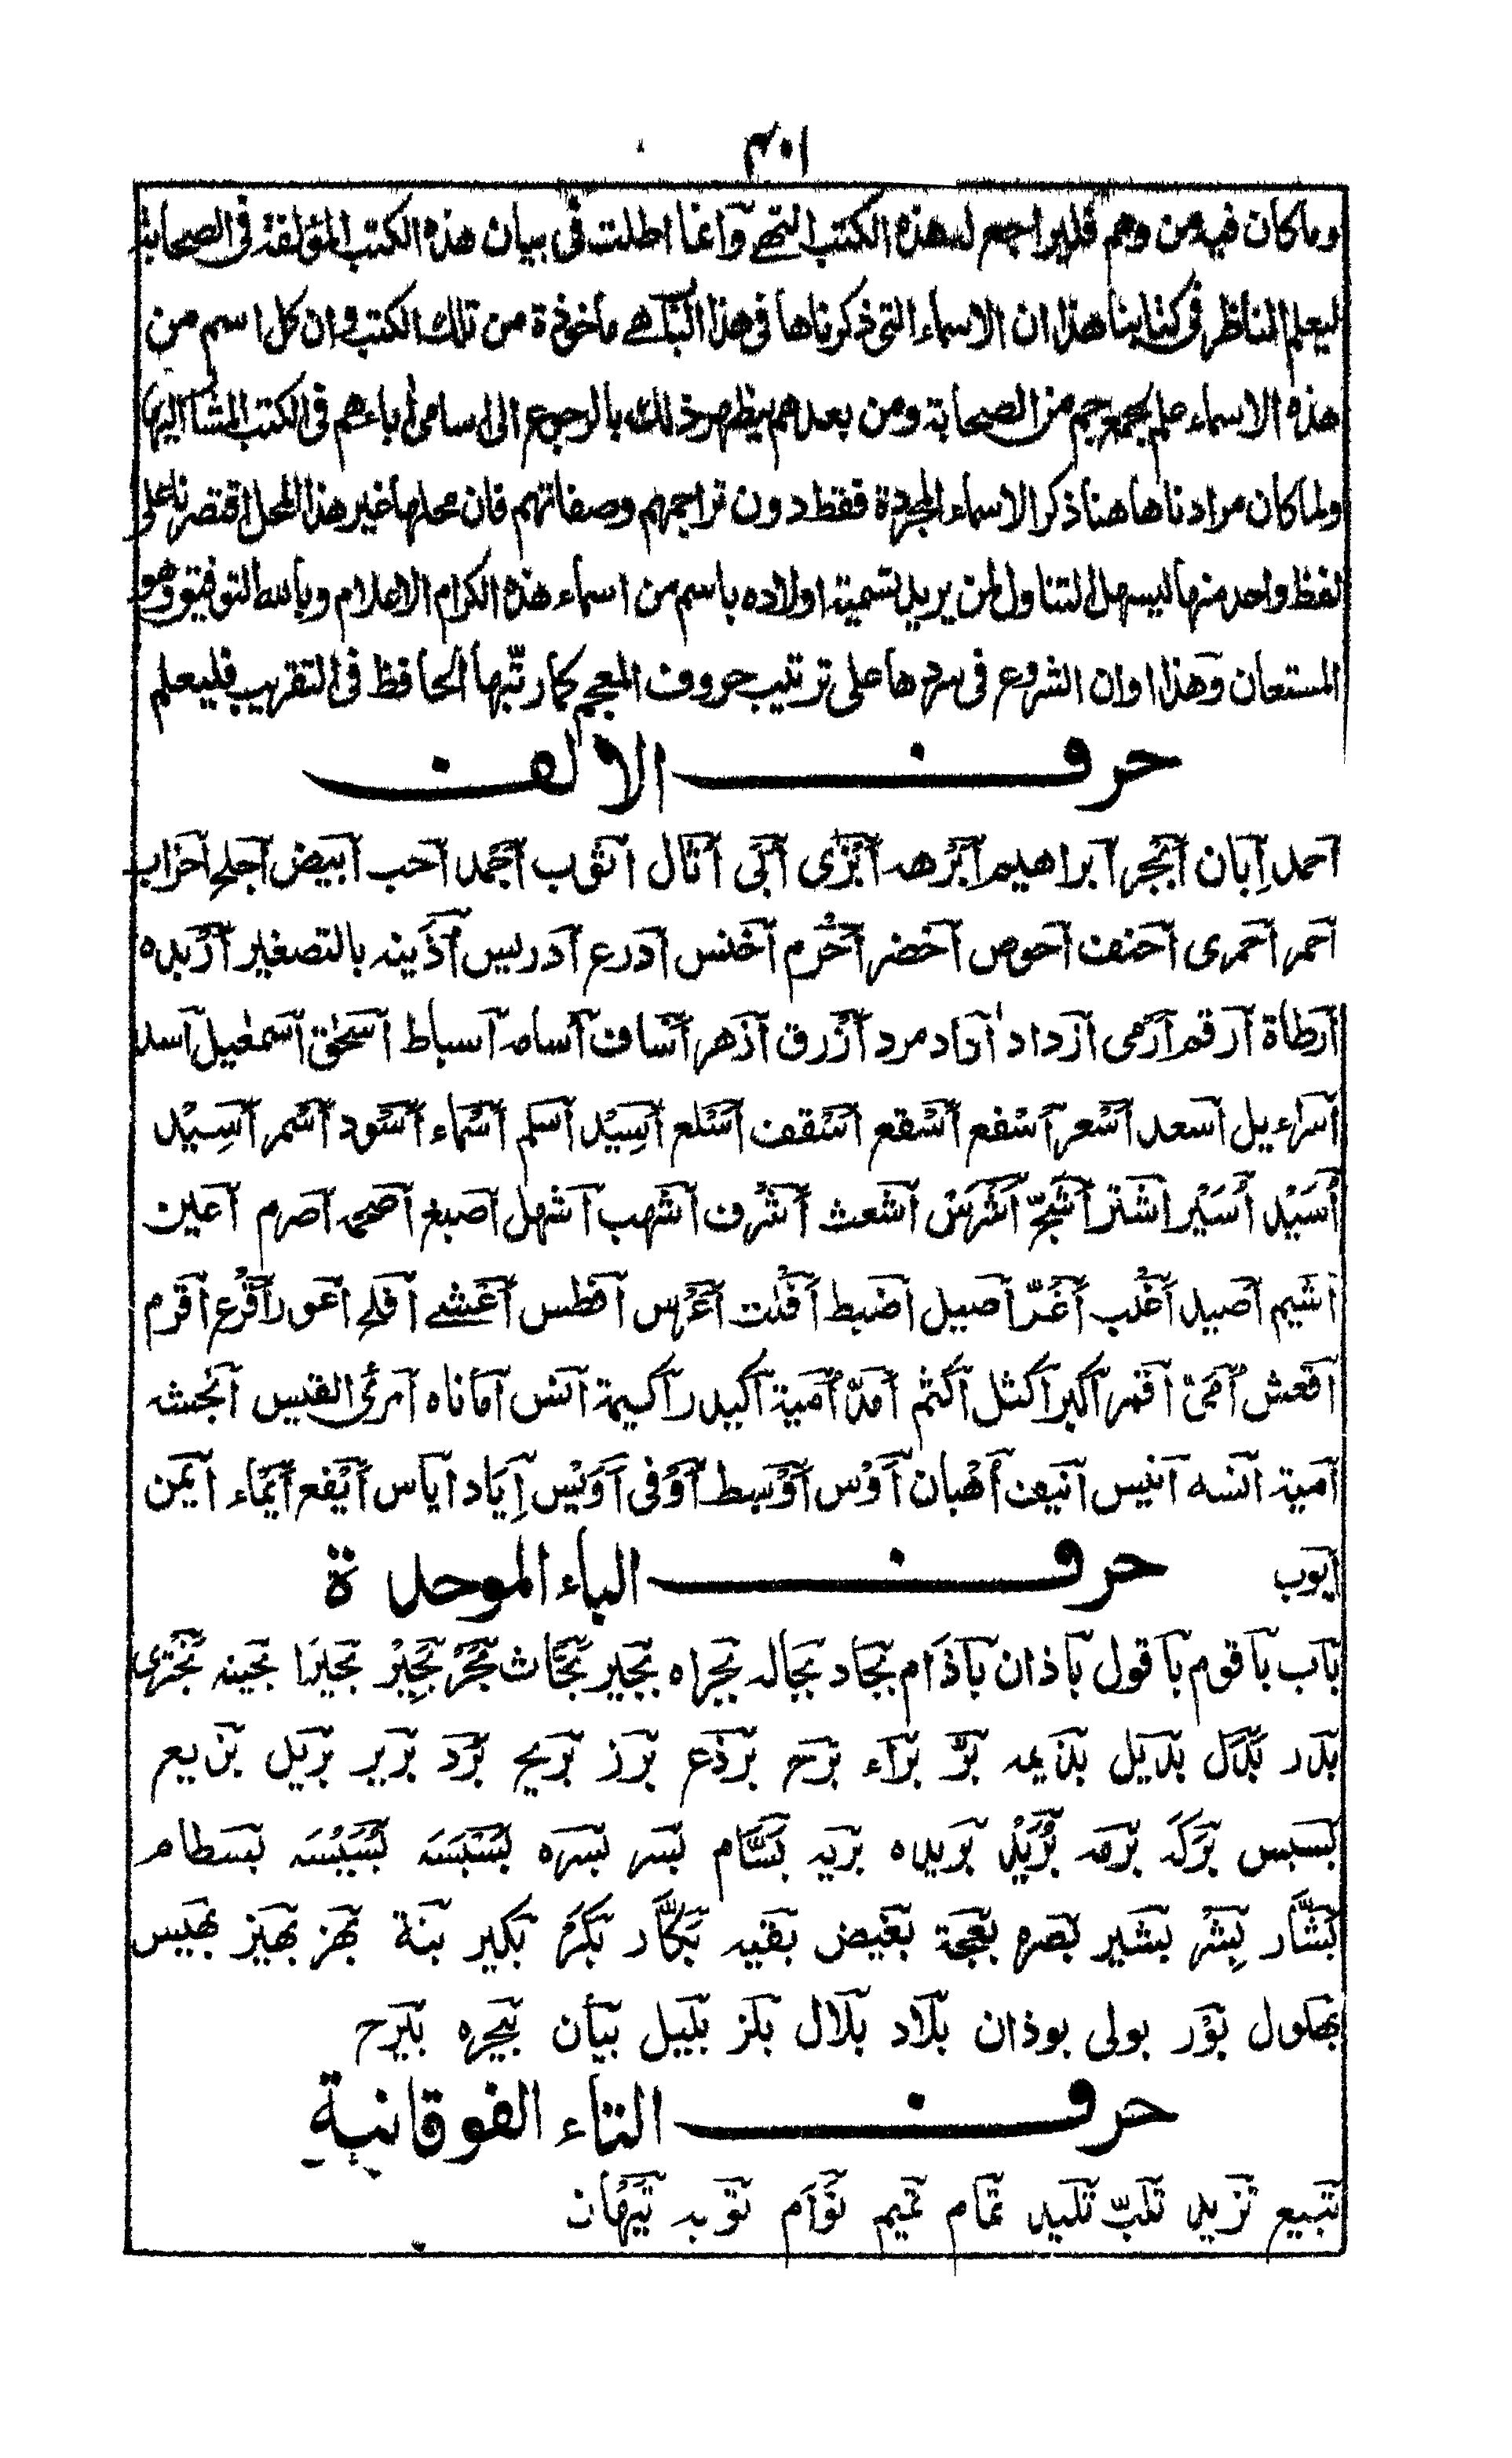 ١٠٣
وما كان فيه من وهم فليراجع لهذه الكتب انتهى وانما اطلت فى بيان هذه الكتب المؤلفة فى الصحابة
ليعلم الناظر فى كتابنا هذا ان الاسماء التى ذكرناها فى هذا الباب هى مأخوذة من تلك الكتب وان كل اسم من
هذه الاسماء علم لجمع جم من الصحابة ومن بعدهم يظهر ذلك بالرجوع الى اسامى اباءهم فى الكتب المشار اليها
ولما كان مرادنا هاهنا ذكر الاسماء المجردة فقط دون تراجمهم وصفاتهم فان محلها غير هذا المحل اقتصرنا على
لفظ واحد منها ليسهل التناول لمن يريد تسمية اولاده باسم من اسماء هذه الكرام الاعلام وبالله التوفيق وهو
المستعان وهذا اوان الشروع فى سردها على ترتيب حروف المعجم كما رتّبها الحافظ فى التقريب فليعلم
حرف الالف
احمد اِبان اَبْجر ابراهيم اَبْرهه اَبْزٰى اُبَى اُثال اثوب اَجْمد احب ابيض اجلح احزاب
احمر احمرى احنف احوص اخضر اَخْرم اخنس ادرع ادريس اُذَينه بالتصغير اَرْبده
ارطاة ارقم ارمى ازداد ازاد مرد اَزْرق ازهر اساف اُسامه اسباط اسحٰق اسمٰعيل اسد
اسراءيل اسعد اَسْعر اَسْفع اَسْقع اَسْقف اَسْلع اَسِيْد اسلم اَسْماء اَسْود اَسْمر اَسِيْد
اُسَيْد اُسَيْر اشتر اَشَجّ اَشْرَس اشعث اَشْرف اشهب اشهل اصبغ اصحمه اصرم اعين
اشيم اصيد اَغْلب اَغَرّ اصيل اضبط اَفْلت اَعْرس افطس اَعْشى افلح اعور اَقْرع اقرم
اقعش اُمَىّ اقمر اكبر اكتل اكثم اُميّة اكيدر اكيمة انس اماناه امرئى القيس انجشه
امية انسه انيس انيف اُهْبان اَوْس اَوْسط اَوْفى اُوَيْس اِيَاد اياس اَيْفع اَيْماء ايمن
ايوب
حرف الباء الموحدة
باب باقوم باقول باذان باذَام بجاد بجاله بجراه بجير بَحَّاث بَحْر بَحِيْر بحيرا بحينه بَخْترى
بدر بُديل بذيمه بَرّ برَاء برح برْذع برز بريح بُرْد برير بريل بزيع
بسبس بَرَكَة برمه بُرَيْد بريده بريه بَسَّام بسر بسره بَسْبَسَه بُسَيْسَه بسطام
بَشَّار بِشْر بشير بصره بعجة بغيض بقيه بَكَّار بَكْر بكير بنة بهز بهيز بهيس
بهلول بَوْر بولى بوذان بلاد بلال بلز بليل بيان بيجره بيرح
حرف التاء الفوقانية
تبيع تزيد تلبّ تليد تمام تميم تَوْاَم توبه تَيْهَان